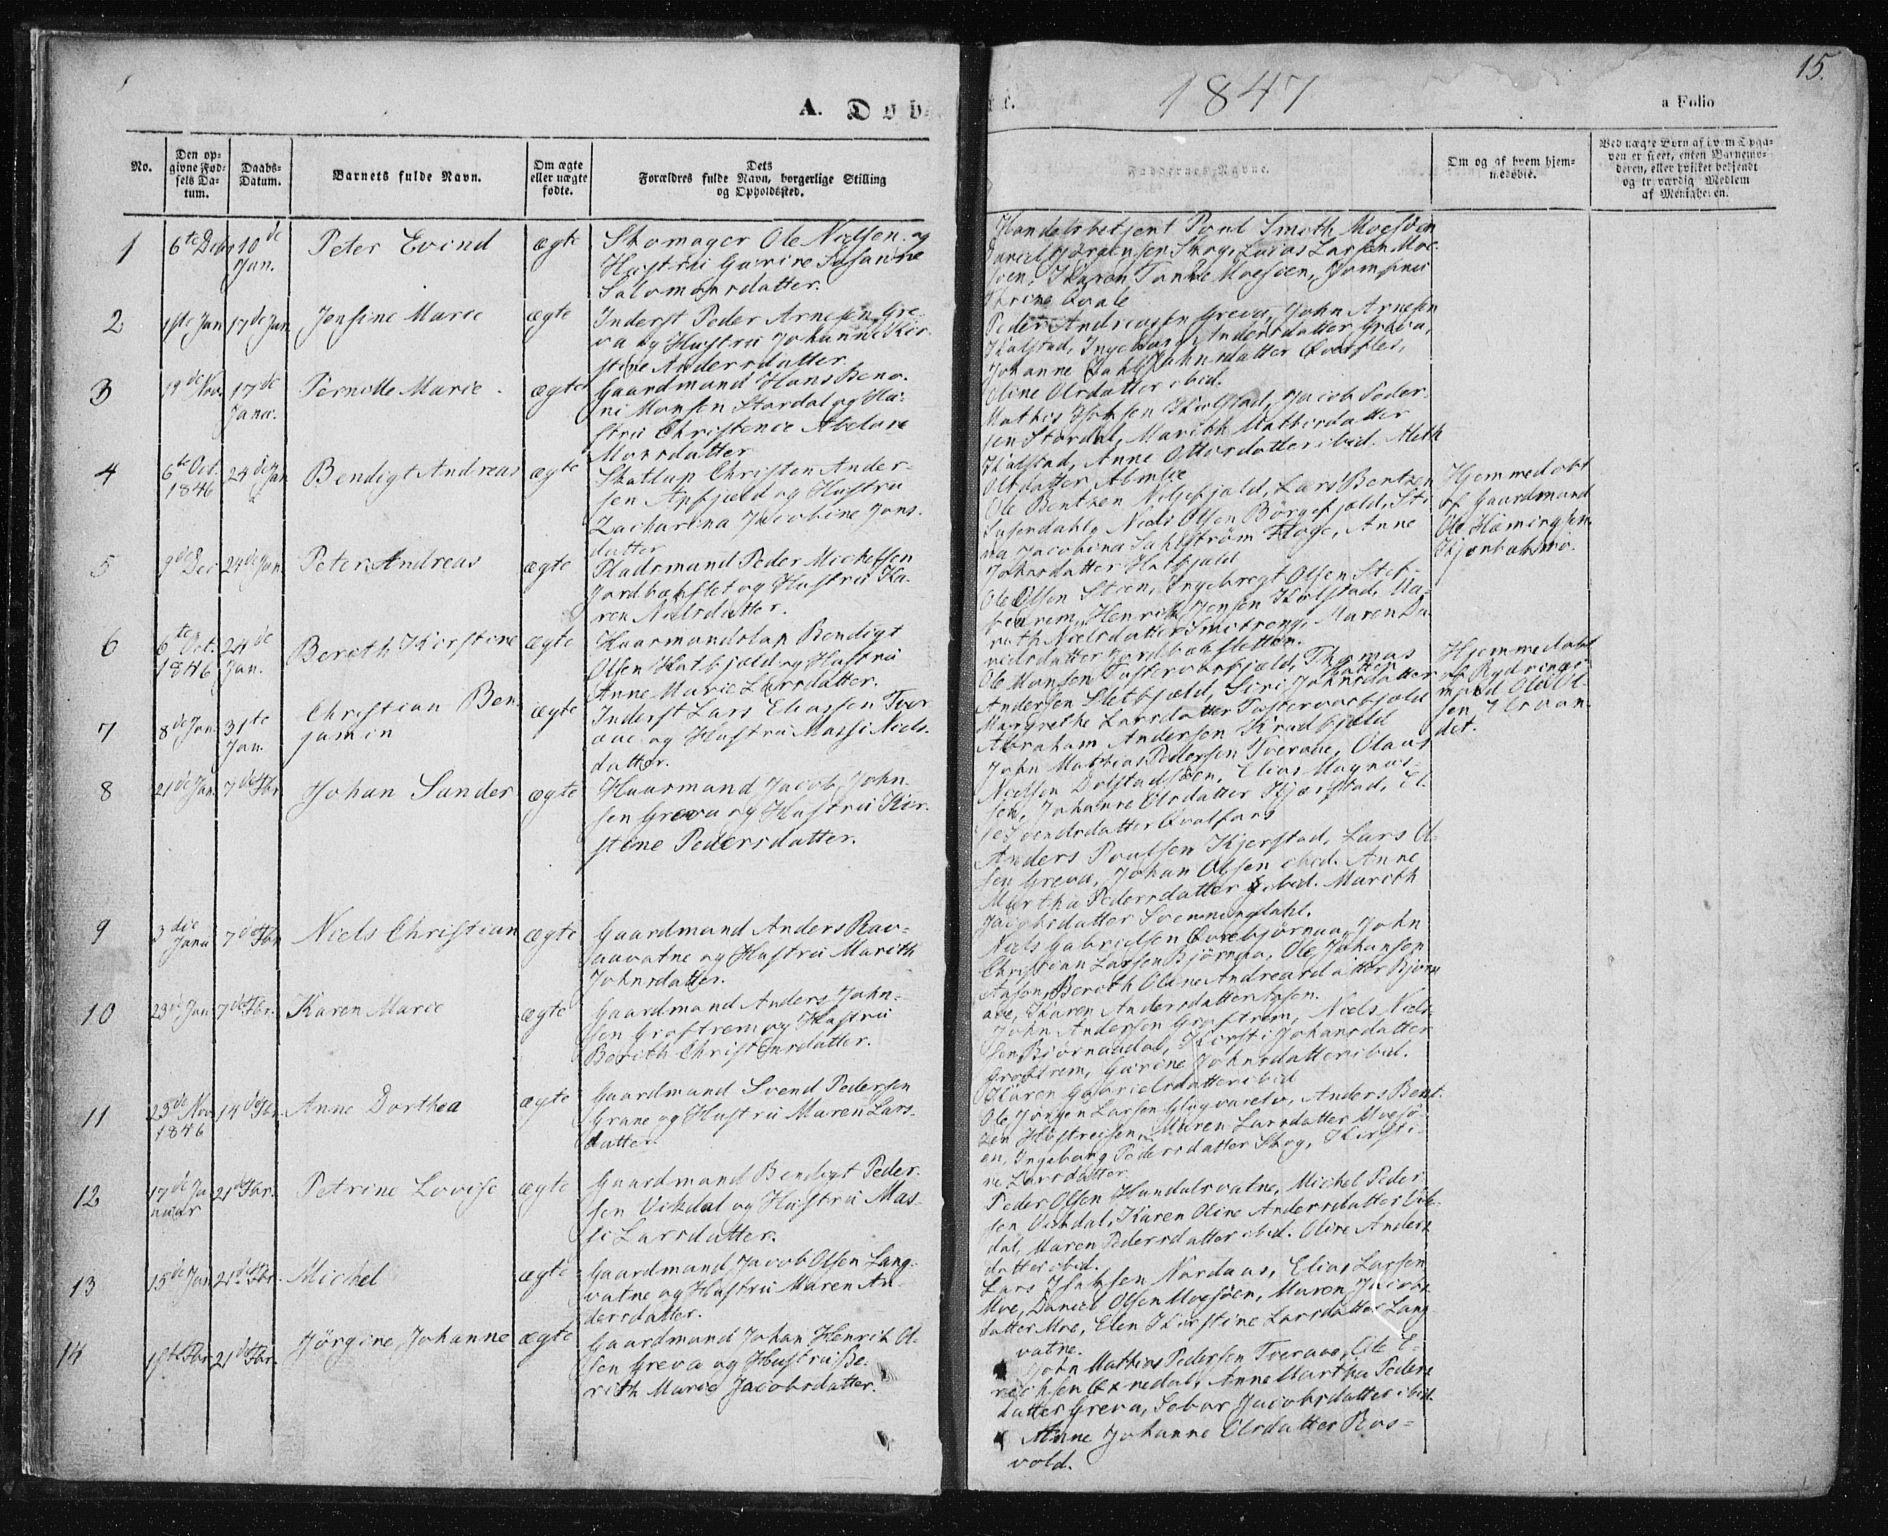 15.
A. Døb-
te.
1847
a Folio
No.
Den op-
givne Fød-
sels Da-
tum.
Daabs-
Datum.
Barnets fulde Navn.
Om ægte
eller uægte
fødte.
Dets
Forældres fulde Navn, borgerlige Stilling
og Opholdssted.
Faddernes Navne.
Om og af hvem hjem-
medøbt.
Ved uægte Børn af hvem Opga-
ven er skeet, enten Barnemo-
deren, eller hvilket bekjendt
og troværdig Medlem
af Menigheden.
1
6te Debr
10de
Jan.
Peter Evind
ægte
Skomager Ole Nielsen og
Hustru Gurine Susanne
Salomonsdatter.
Handelsbetjent Povl Smith Moesøen
Daniel Jørgensen Skog, Lucas Larsen Moe-
søen, Karen Tanke Moesøen,
Trine Qvale
2
1ste Jan
17de Jan
Jonsine Marie
ægte
Inderst Peder Arnesen Gre-
va og Hustru Johanne Kir-
stine Andersdatter
Peder Andreassen Greva, John Arnesen
Kulstad, Ingeborg Andersdatter Greva,
Johanne Johnsdatter
Oline Olsdatter ibid.
3
19de Nov.
17de
Janu.
Pernille Marie
ægte
Gaardmand Hans Beno-
ni Monsen Stordal og Hu-
stru Christence Abelone
Monsdatter
Mathis Kulstad, Jacob Peder-
sen Stordal, Marith Mathisdatter
Kulstad, Anne Ottarsdatter ibid. Aleth
Olsdatter Almlie
4
6te Oct.
1846
24de Jan
Bendigt Andreas
ægte
Skatlap Christen Ander-
sen Apfjeld og Hustru
Zacharina Jacobine Jons-
datter
Ole Bentzen Lars Bentzen
Susendahl, Niels Olsen Børgefjeld, Sti-
na Jacobina Sahlstrøm Anne
Johnsdatter Hatfjeld
Hjemmedøbt
af Gaardmand
Ole Hemingsen
5
9de Dec
24de Jan.
Peter Andreas
ægte
Pladsmand Peder Michelsen
Jordbækslet og Hustru Ka-
ren Nielsdatter.
Ole Olsen Steen, Ingebregt Olsen
Henrik Jensen Kulstad, Ma-
rith Nielsdatter Maren Da-
nielsdatter Jordbæksletten.
6
6te Oct.
1846
24de
Jan.
Bereth Kirstine
ægte
Huusmandslap Bendigt
Olsen Hatfjeld og Hustru
Anne Marie Larsdatter.
Ole Monsen Thomas
Andersen Sletfjeld, Siri Johnsdatter
Margrethe Larsdatter
Abraham Andersen
Hjemmedøbt
af Rydnings-
mand Ole Ol-
sen
7
8de Jan.
31te
Jan.
Christian Ben-
jamin
ægte
Inderst Lars Eliassen Tver-
aae og Hustru Massi Niels-
datter.
John Mathias Pedersen Tveraae, Olaus
Nielsen Dolstadsøen, Elias Magnus-
sen, Johanne Olsdatter Kjærstad,
8
21de Jan.
7de Fbr
Johan Sander
ægte
Huusmand Jacob John-
sen Greva og Hustru Kir-
stine Pedersdatter.
Anders Poulsen Kjerstad, Lars Ol-
sen Greva, Johan Olsen ibid. Anne
Martha Pedersdatter ibid. Marith
Jacobsdatter Svenningdahl.
9
3die
Janu
7de Fbr
Niels Christian
ægte
Gaardmand Anders
og Hustru Marith
Johnsdatter.
Niels Gabrielsen John
Christian Larsen Bjørnaa, Ole Johansen
Bereth Oline Andreasdatter Bjørn-
aae, Karen Andersdatter
10
23de Jan
7de Fbr.
Karen Marie
ægte
Gaardmand Anders John-
sen Groftrem og Hustru
Bereth Christensdatter.
John Andersen Groftrem, Niels Niel-
sen Bjørnaadal, Kirsti Johansdatter
Groftrem, Gurine Johnsdatter ibid.
Karen Gabrielsdatter ibid
11
23de Nov
1846
14de Fbr
Anne Dorthea
ægte
Gaardmand Svend Pedersen
Grane og Hustru Maren Lars-
datter
Ole Jørgen Larsen Anders Bent-
zen Maren Larsdatter Moesø-
en, Ingeborg Pedersdatter Skog, Kirsti-
ne Larsdatter
12
17de Ja-
nuar
21de Fbr.
Petrine Lovise
ægte
Gaardmand Bendigt Peder-
sen Vikdal og Hustru Mas-
si Larsdatter.
Peder Olsen Hundalsvatne, Michel Peder-
sen Vikdal, Karen Oline Andersdatter Vik-
dal, Maren Pedersdatter ibid. Oline Anders-
datter ibid.
13
15de Jan
21de Fbr.
Michel
ægte
Gaardmand Jacob Olsen Lang-
vatne og Hustru Maren An-
dersdatter.
Lars Nordaas, Elias Larsen
Moe, Daniel Olsen Moesøen, Maren Jacobs-
datter Moe, Elen Kirstine Larsdatter Lang-
vatne.
14
1ste Fbr.
21de Fbr.
Jørgine Johanne
ægte
Gaardmand Johan Henrik Ol-
sen Greva og Hustru Be-
rith Marie Jacobsdatter.
John Mathias Pedersen Tveraae, Ole E-
richsen Anne Martha Peders-
datter Greva, Jacobsdatter ibid.
Anne Johanne Olsdatter Ros-
vold.